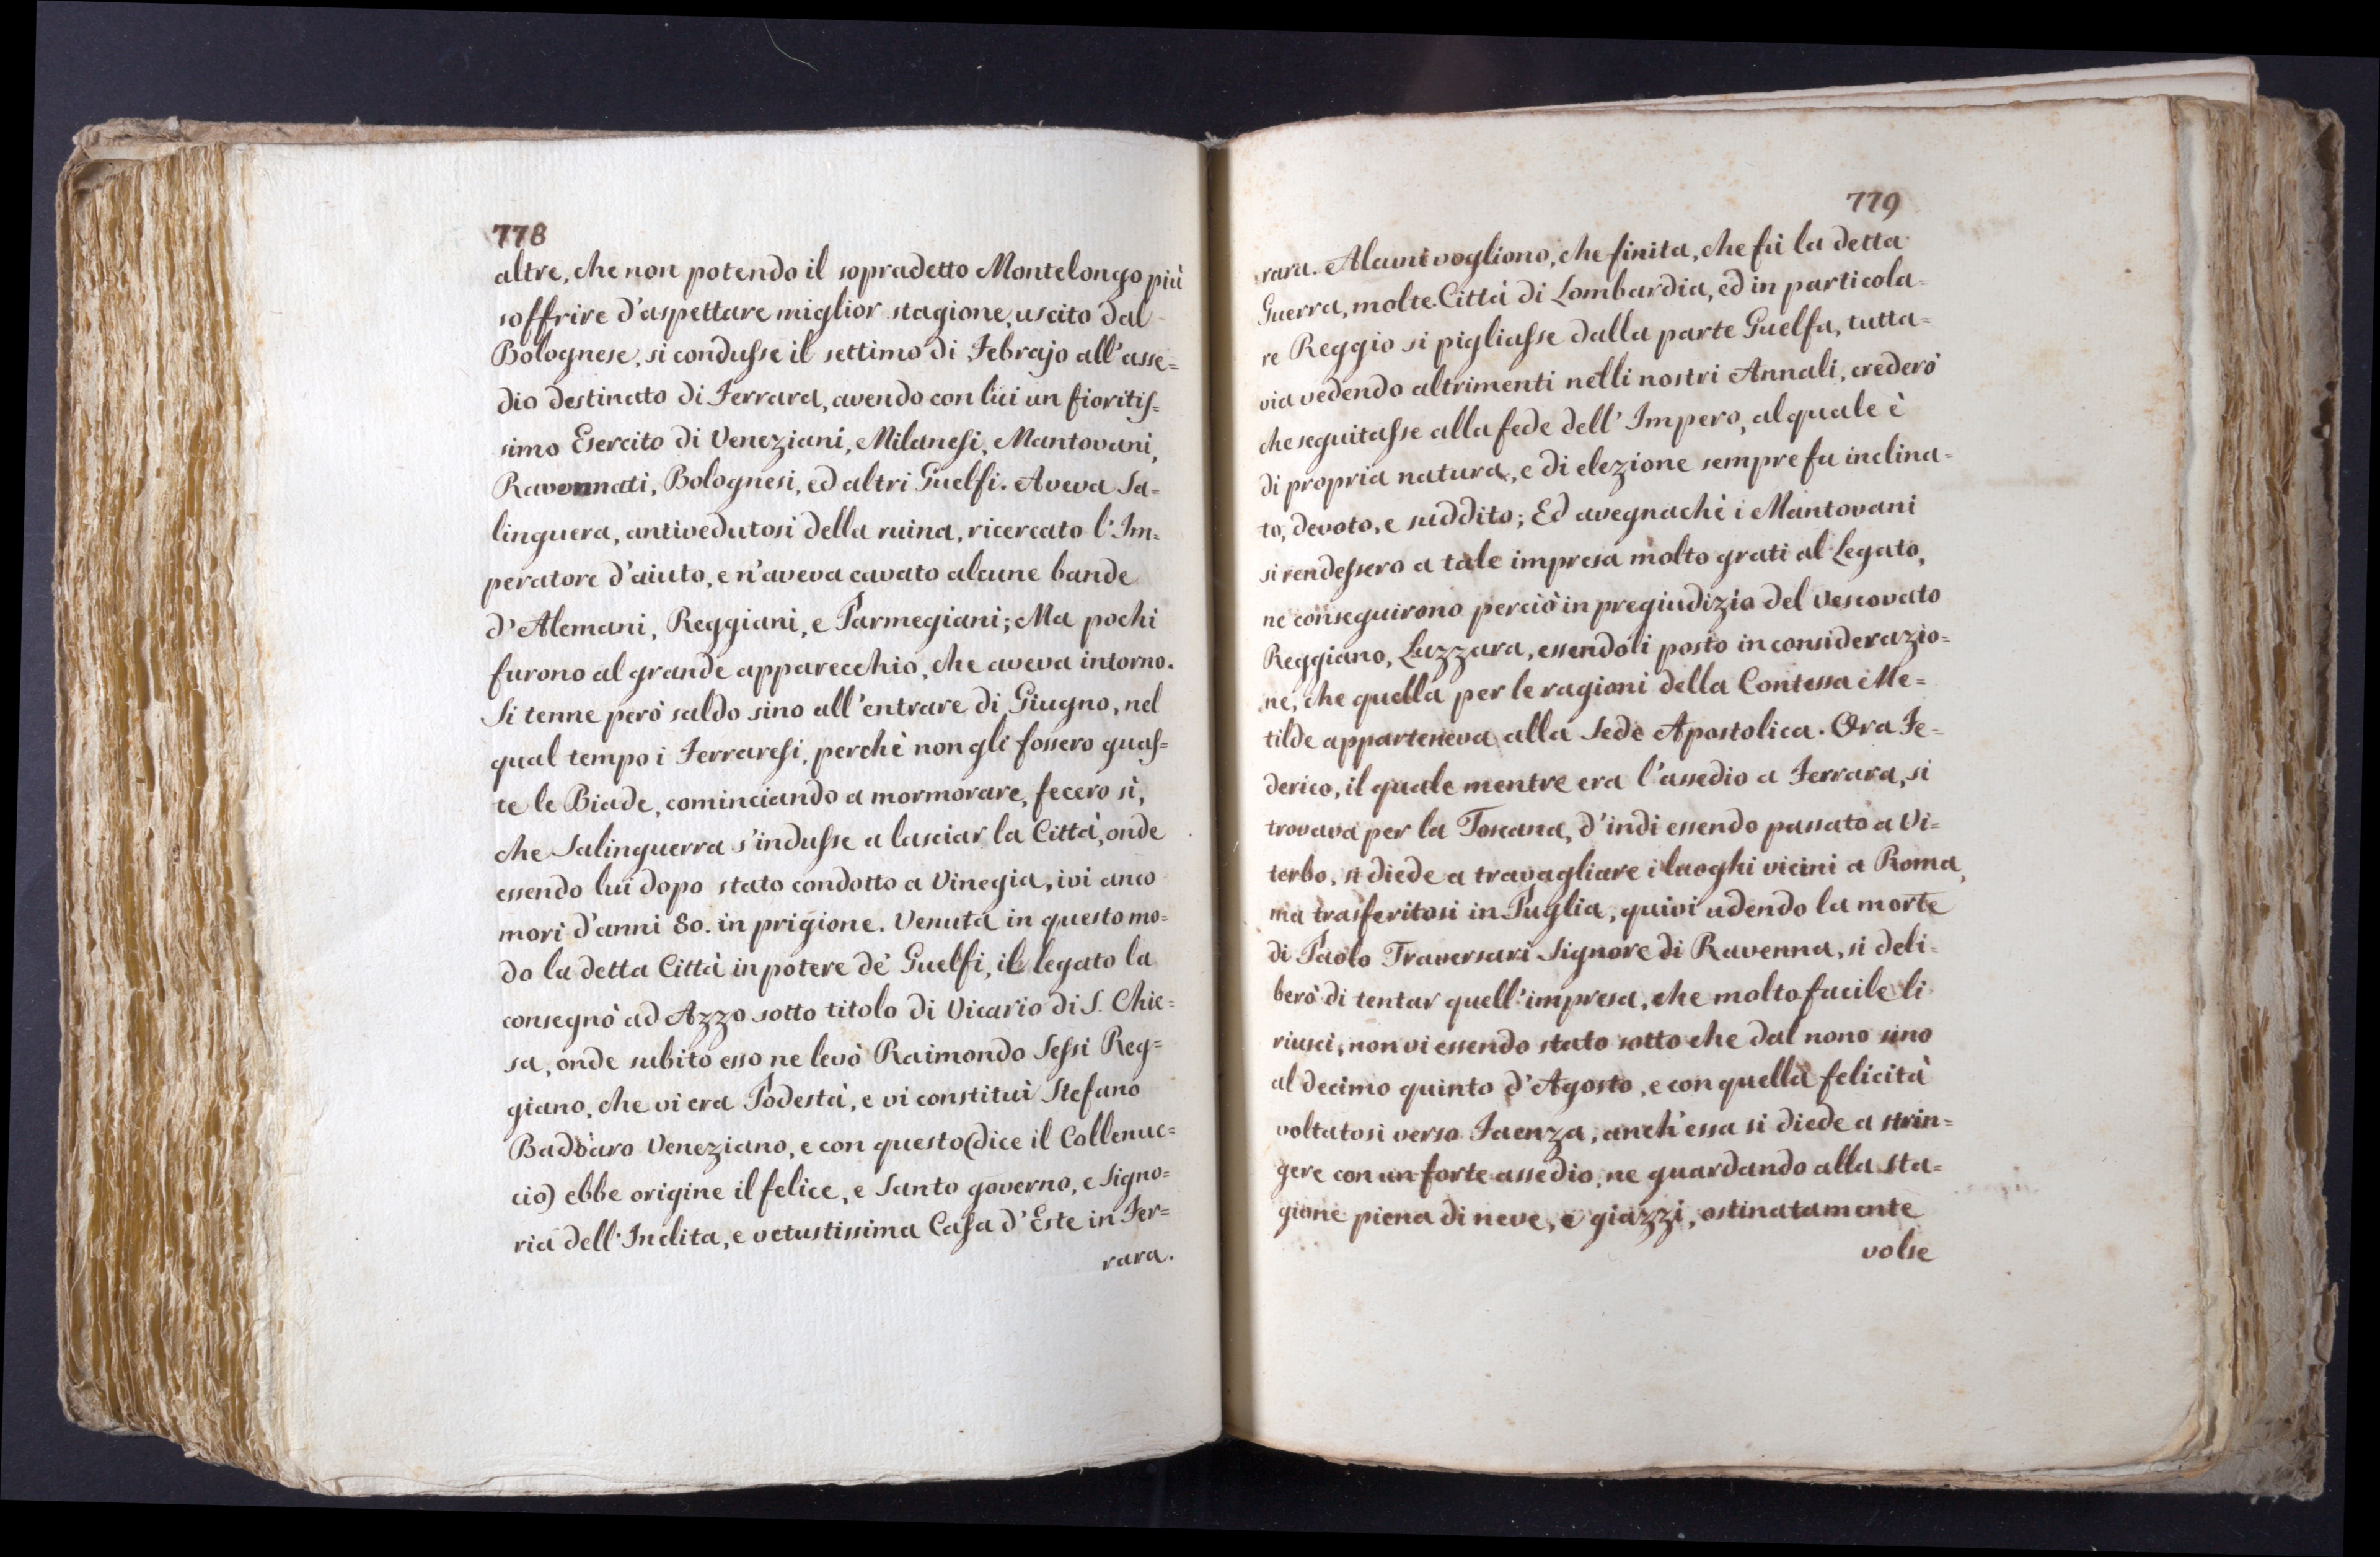 778
altre, che non potendo il sopradetto Montelongo più
soffrire d'aspettare miglior stagione, uscito dal
Bolognese, si condusse il settimo di Febrajo all'asse=
dio destinato di Ferrara, avendo con lui un fioritis=
simo Esercito di Veneziani, Milanesi, Mantovani,
Ravennati, Bolognesi, ed altri Guelfi. Aveva Sa=
linguera, antivedutosi della ruina, ricercato l'Im=
peratore d'aiuto, e n'aveva cavato alcune bande
d'Alemani, Reggiani, e Parmegiani; Ma pochi
furono al grande apparecchio, che aveva intorno.
Si tenne però saldo sino all'entrare di Giugno, nel
qual tempo i Ferraresi, perchè non gli fossero guas=
te le Biade, cominciando a mormorare, fecero sì,
che Salinguerra s'indusse a lasciar la Città, onde
essendo lui dopo stato condotto a Vinegia, ivi anco
mori d'anni 80. in prigione. Venuta in questo mo=
do la detta Città in potere de' Guelfi, il legato la
consegnò ad Azzo sotto titolo di Vicario di S. Chie=
sa, onde subito esso ne levò Raimondo Sessi Reg=
giano, che vi era Podestà, e vi constituì Stefano
Badoaro Veneziano, e con questo (dice il Collenuc=
cio) ebbe origine il felice, e Santo governo, e Signo=
ria dell'Inclita, e vetustissima Casa d'Este in Fer=
rara.
779
rara. Alcuni vogliono, che finita, che fù la detta
Guerra, molte Città di Lombardia, ed in particola=
re Reggio si pigliasse dalla parte Guelfa, tutta=
via vedendo altrimenti nelli nostri Annali, crederò
che seguitasse alla fede dell'Impero, al quale è
di propria natura, e di elezione sempre fu inclina=
to, devoto, e suddito; Ed avegnachè i Mantovani
si rendessero a tale impresa molto grati al Legato,
ne conseguirono perciò in pregiudizio del Vescovato
Reggiano, Luzzara, essendoli posto in considerazio=
ne, che quella per le ragioni della Contessa Me=
tilde apparteneva alla Sede Apostolica. Ora Fe=
derico, il quale mentre era l'assedio a Ferrara, si
trovava per la Toscana, d'indi essendo passato a Vi=
terbo, si diede a travagliare i luoghi vicini a Roma,
ma trasferitosi in Puglia, quivi udendo la morte
di Paolo Traversari Signore di Ravenna, si deli=
berò di tentar quell'impresa, che molto facile li
riuscì, non vi essendo stato sotto che dal nono sino
al decimo quinto d'Agosto, e con quella felicità
voltatosi verso Faenza, anch'essa si diede a strin=
gere con un forte assedio, ne guardando alla sta=
gione piena di neve, e giazzi, ostinatamente
volse